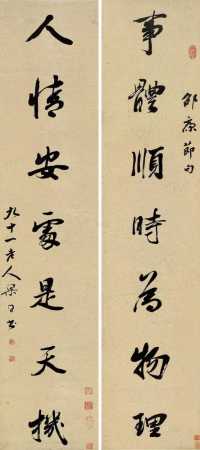 事體順時為物理
邵康節句
人情安處是天機
九十一老人梁同書